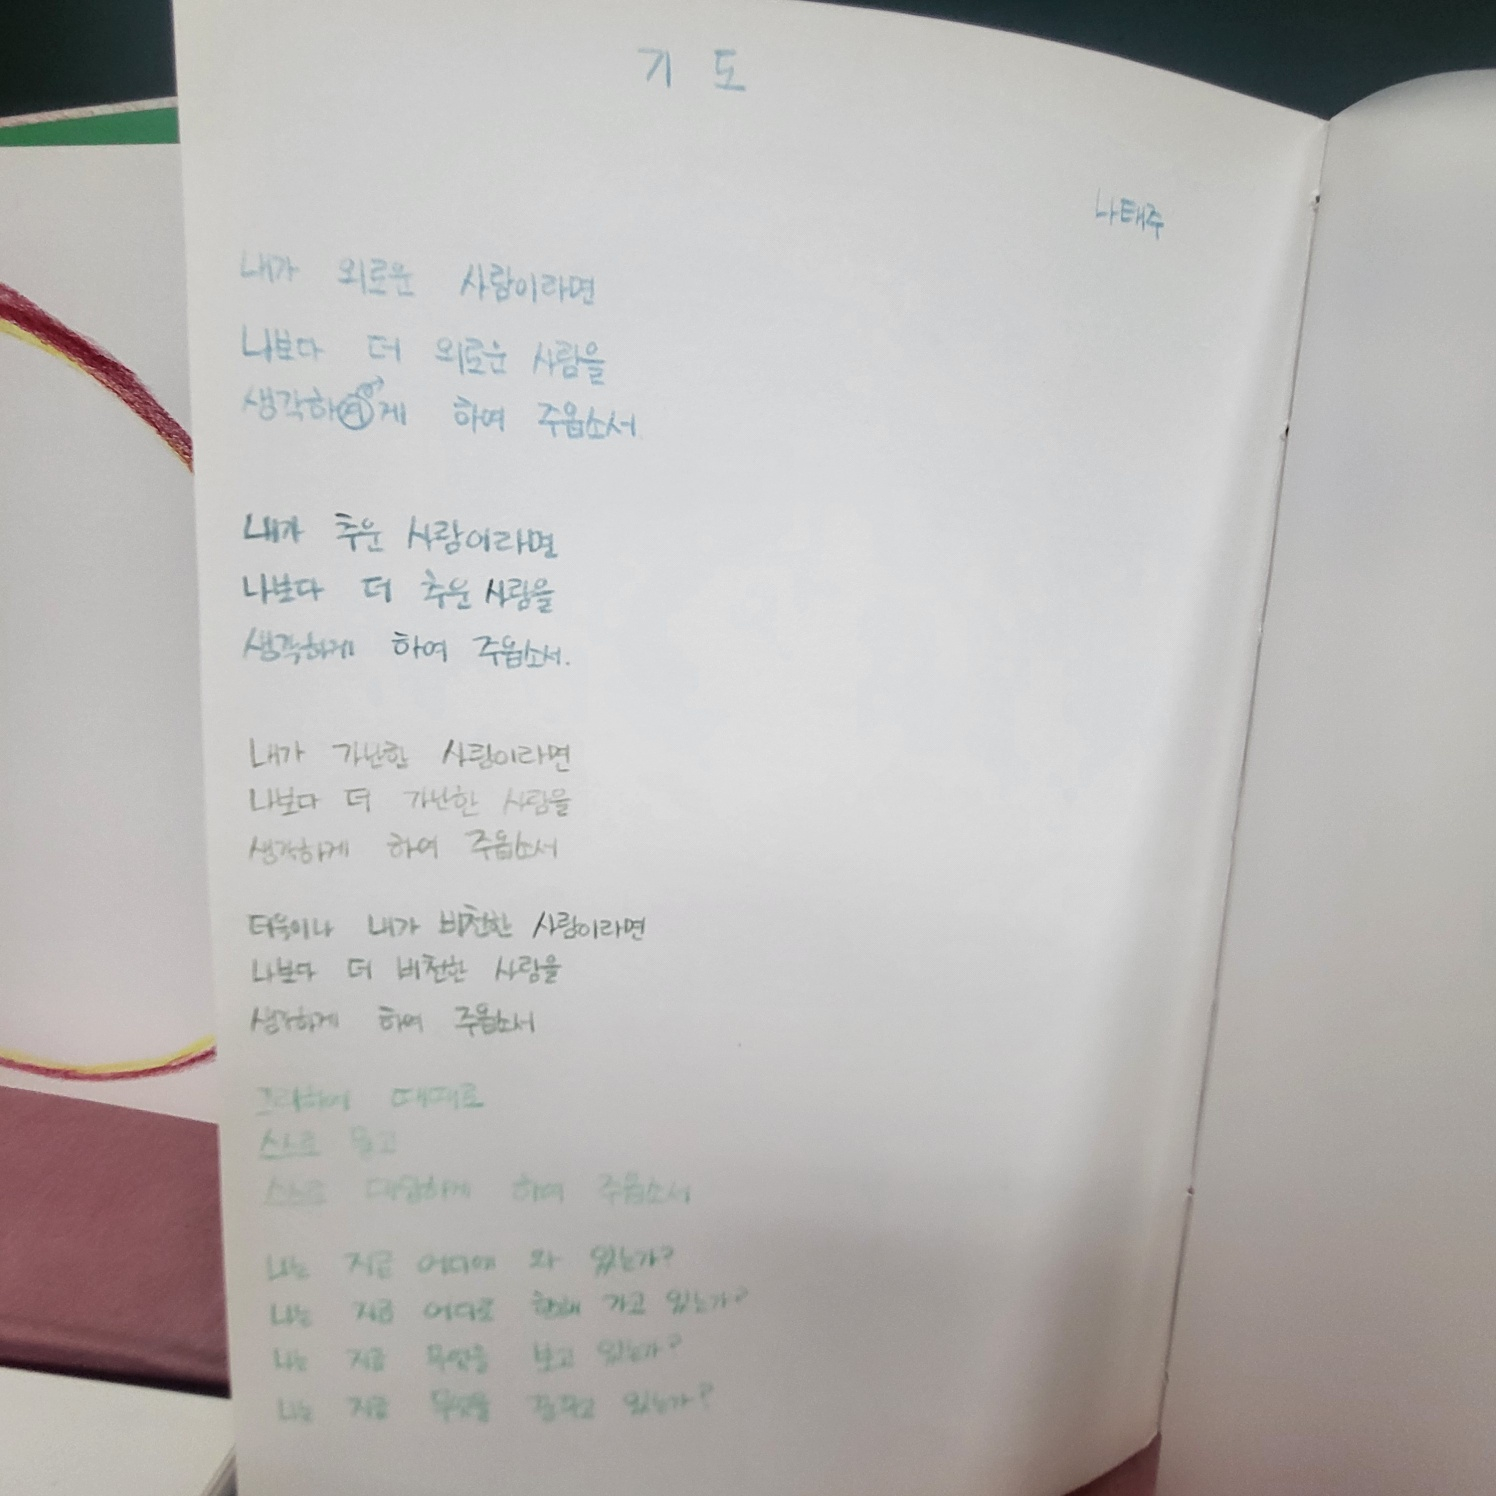 기 도
나태주
내가 외로운 사람이라면
나보다 더 외로운 사람을
생각하게 하여 주옵소서
내가 추운 사람이라면
나보다 더 추운 사람을
생각하게 하여 주옵소서.
내가 가난한 사람이라면
나보다 더 가난한 사람을
생각하게 하여 주옵소서
더욱이나 내가 비천한 사람이라면
나보다 더 비천한 사람을
생각하게 하여 주옵소서
그리하여 때때로
스스로 묻고
스스로 대답하게 하여 주옵소서
나는 지금 어디에 와 있는가?
나는 지금 어디로 향해 가고 있는가?
나는 지금 무엇을 보고 있는가?
나는 지금 무엇을 꿈꾸고 있는가?